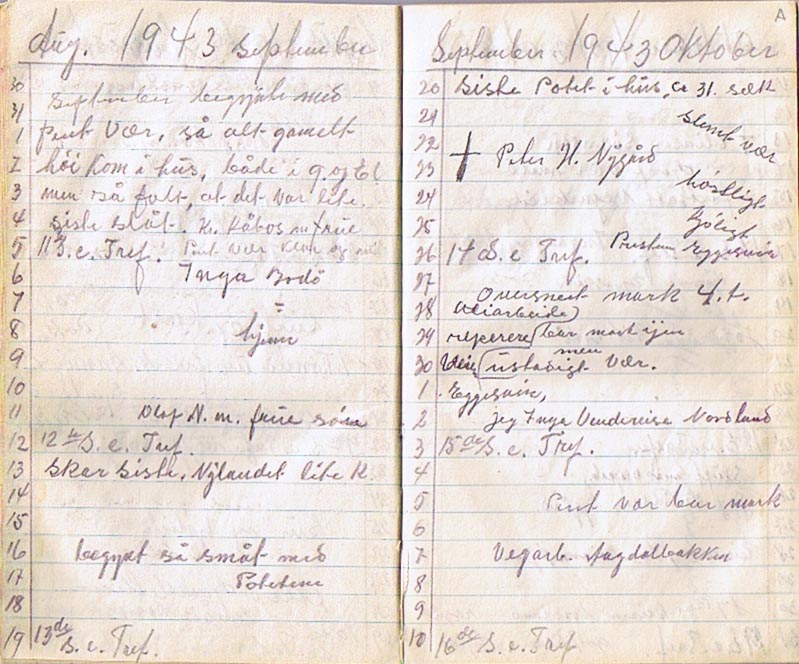 Aug. 1943 September
30
31 September begynte med
1 Pent Vær, så alt gamelt
2 høi kom i hus, både i g og E!
3 men så fult, at det var lite.
4 siste slåt. K. Kåbos m frue
5 11te S. e. Tref. Pent Vær
6 Inga Bodö
7 =
8 hjem
9
10
11 Olaf N. m. frue søm
12 12te S. e. Tref.
13 Skar siste, Nylandet lite K.
14
15
16 begynt så småt med
17 Potetene
18
19 13de S. e. Tref.
September 1943 Oktober
A
20 Siste Potet i hus, ca 31. sæk
21
22 slemt vær
23 † Peter H. Nygård
24 høstligt
25 kjöligt
26 14 d. S. e Tref. Prestem Eggesvik
27
28 Oversneet mark 4. t.
Veiarbeide
29 reperere bar mark ijen
30 Veie ustadigt men Vær.
1 Eggesvik,
2 Jeg Inga Vendereise Nordland
3 15de S. e. Tref.
4
5 Pent vær bar mark
6
7 Vegarb. Aagdalbakken
8
9
10 16de S. e. Tref.